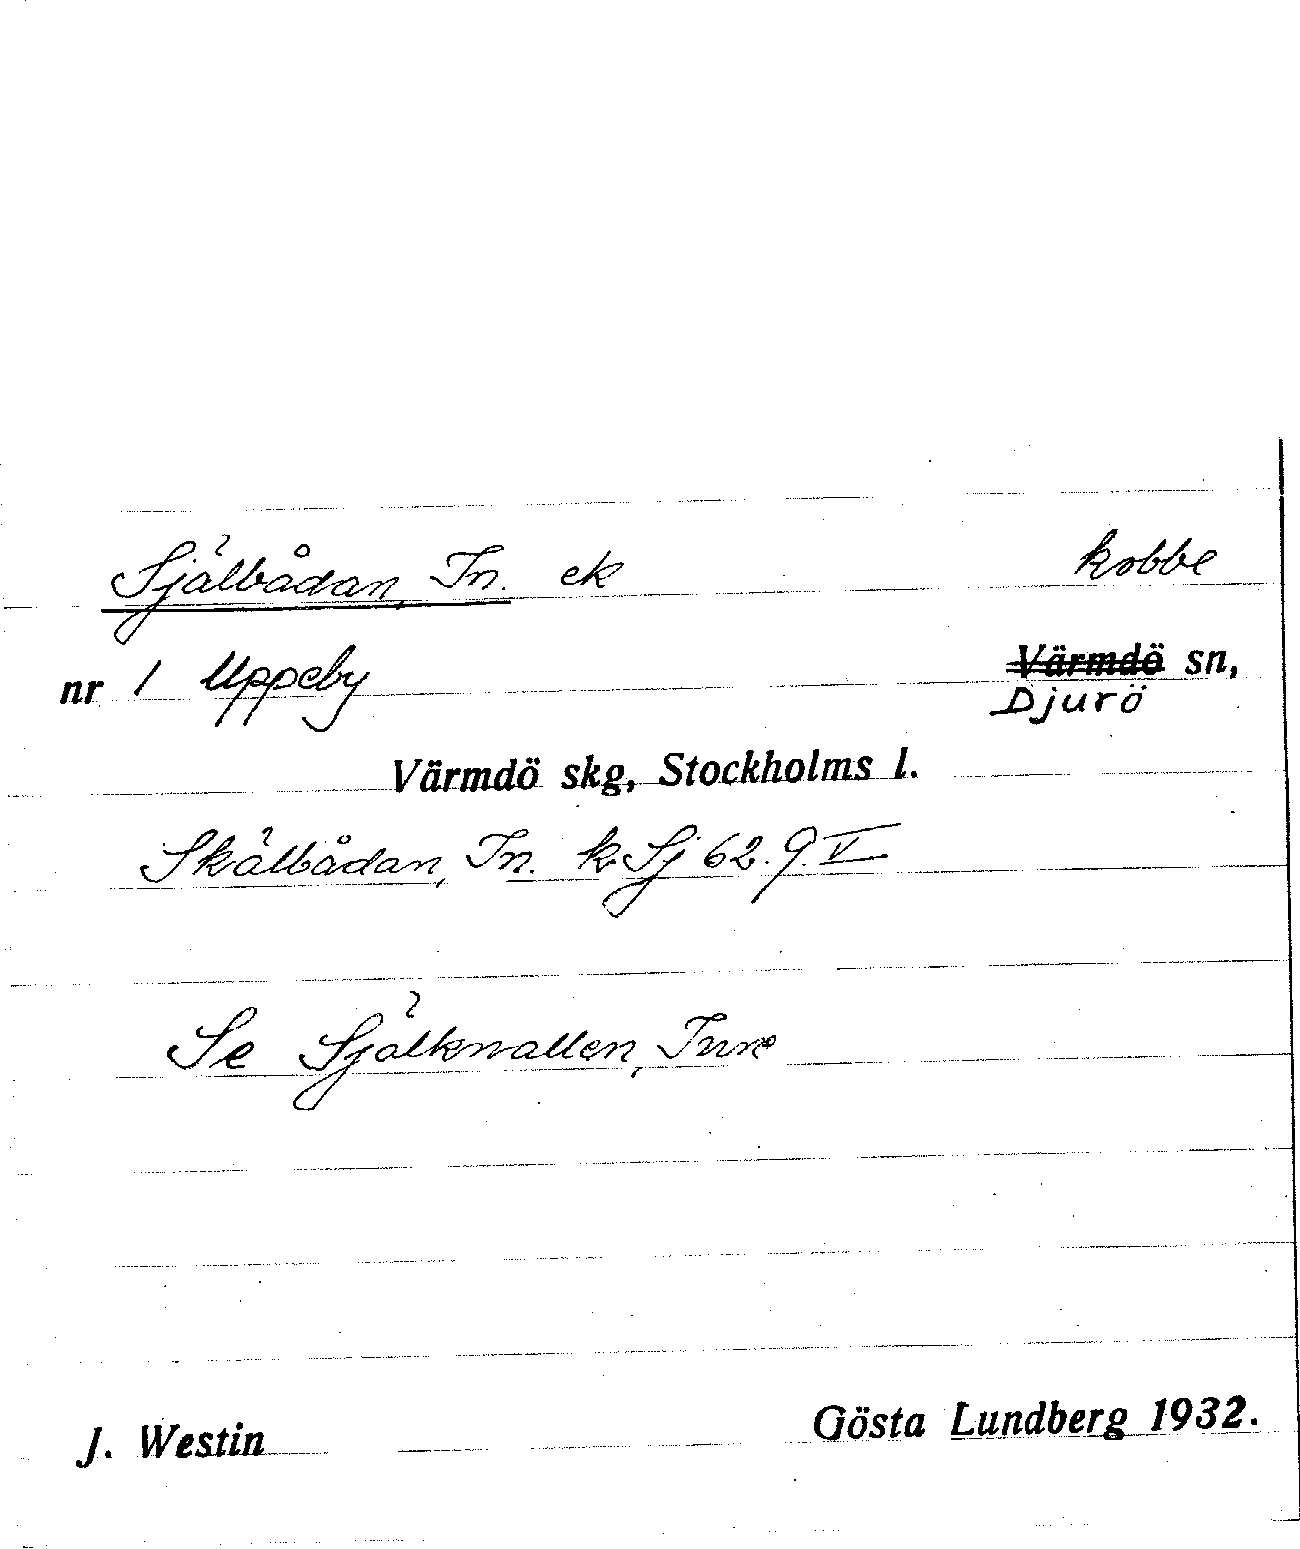 Själbådan, In. ek kobbe
nr 1 Uppeby Värmdö sn,
Djurö
Värmdö skg, Stockholms l.
Skälbådan, In. k Sj 62. 9. V
Se Själknallen, Inre
J. Westin Gösta Lundberg 1932.